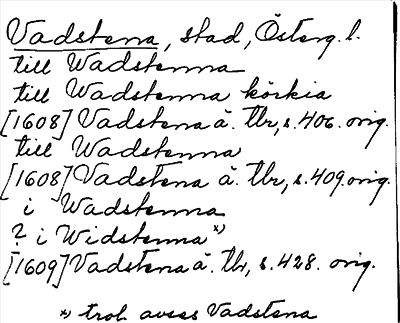 Vadstena, stad, Österg. l.
till Wadstenna
till Wadstenna körkia
[1608] Vadstena ä. tbr, s. 406. orig.
till Wadstenna
[1608] Vadstena ä. tbr, s. 409. orig.
i Wadstenna
? i Widstenna *)
[1609] Vadstena ä. tb, s. 428. orig.
*) trol. avses Vadstena